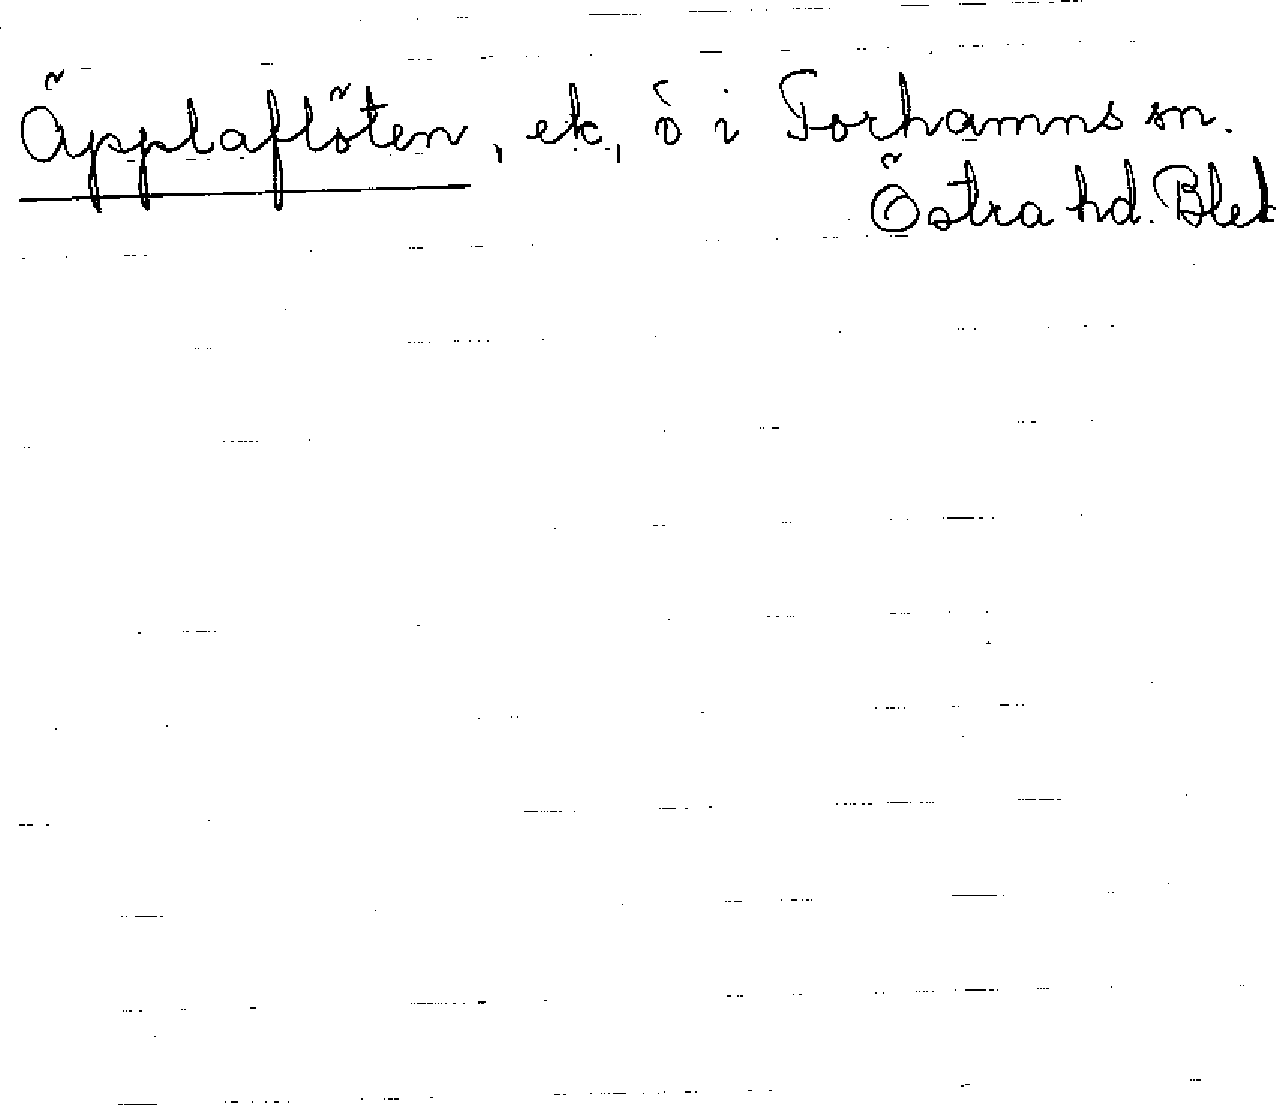 Äpplaflöten, ek, ö i Torhamns sn.
Östra hd. Blek